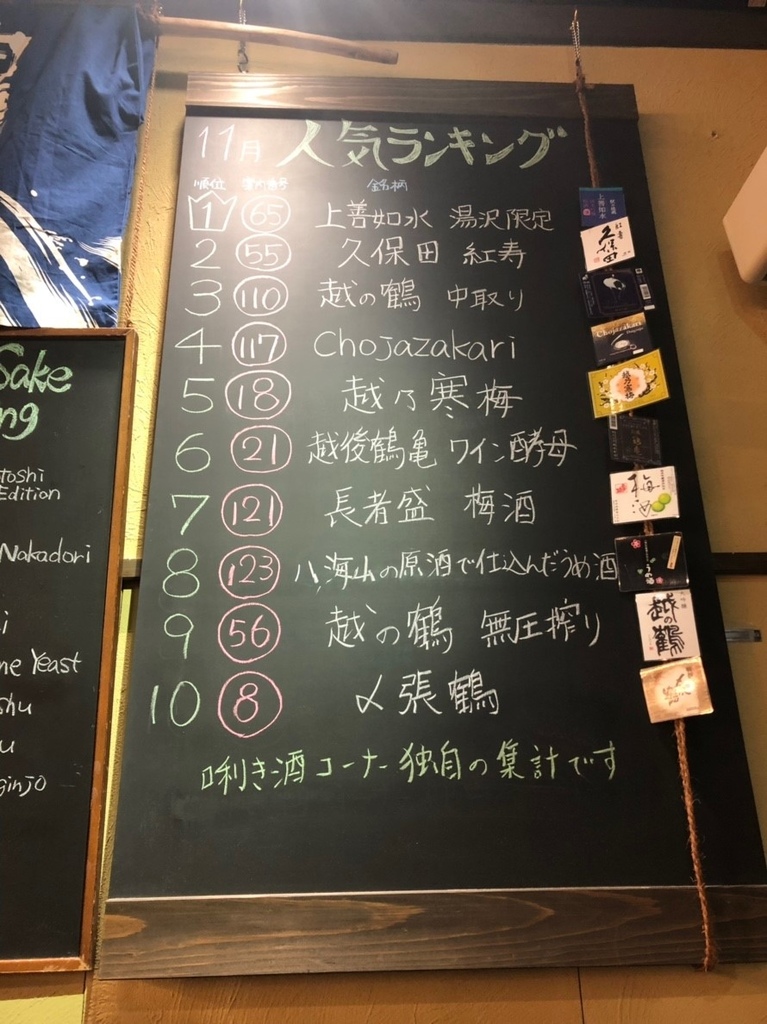 11月 人気ランキング
順位 番号 銘柄
1 65 上善如水 湯沢限定
2 55 久保田 紅寿
3 110 越の鶴 中取り
4 117 Chojazakari
5 18 越乃寒梅
6 21 越後鶴亀 ワイン酵母
7 121 長者盛 梅酒
8 123 八海山の原酒で仕込んだうめ酒
9 56 越の鶴 無圧搾り
10 8 〆張鶴
唎き酒コーナー独自の集計です
Sake
ng
toshi
Edition
Nakadori
i
ne Yeast
shu
u
ginjo
上善如水
久保田
紅寿
Chojazakari
越乃寒梅
梅酒
越の鶴